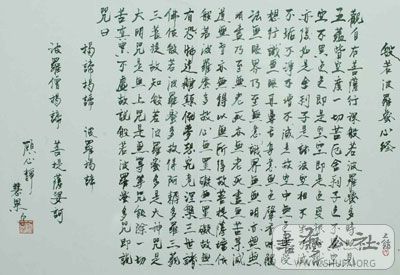 般若波羅蜜心經
觀自在菩薩行深般若波羅蜜多時
五蘊皆空度一切苦厄舍利子色
空空不異色色即是空空即是色受
亦復如是舍利子是諸法空相不
不垢不淨不增不減是故空中無色
想行識無眼耳鼻舌身意無色聲香味觸
法無眼界乃至無意識界無無明亦無無
明盡乃至無老死亦無老死盡無苦集滅
道無智亦無得以無所得故菩提薩埵依
般若波羅蜜多故心無罣礙無罣礙故無
有恐怖遠離顛倒夢想究竟涅槃三世諸
佛依般若波羅蜜多故得阿耨多羅三藐
三菩提故知般若波羅蜜多是大神咒是
大明咒是無上咒是無等等咒能除一切
苦真實不虛故說般若波羅蜜多咒即說
咒曰
揭諦揭諦 波羅揭諦
波羅僧揭諦 菩提薩婆訶
书法公社
WWW.SHUFA.ORG